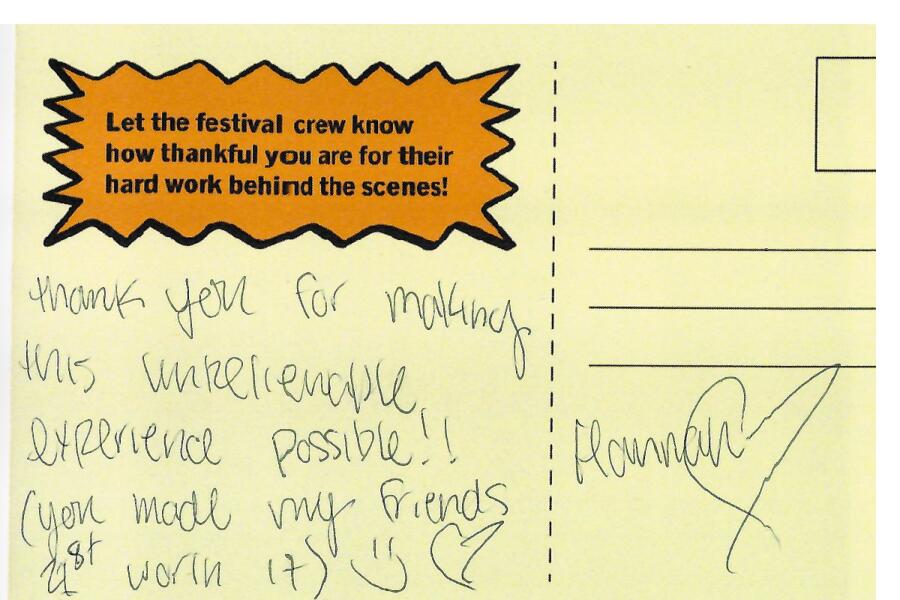 Let the festival crew know
how thankful you are for their
hard work behind the scenes!
thank you for making
this unbelievable
experience possible!!
(you made my friends
21st worth it) :) ♡
Hannah